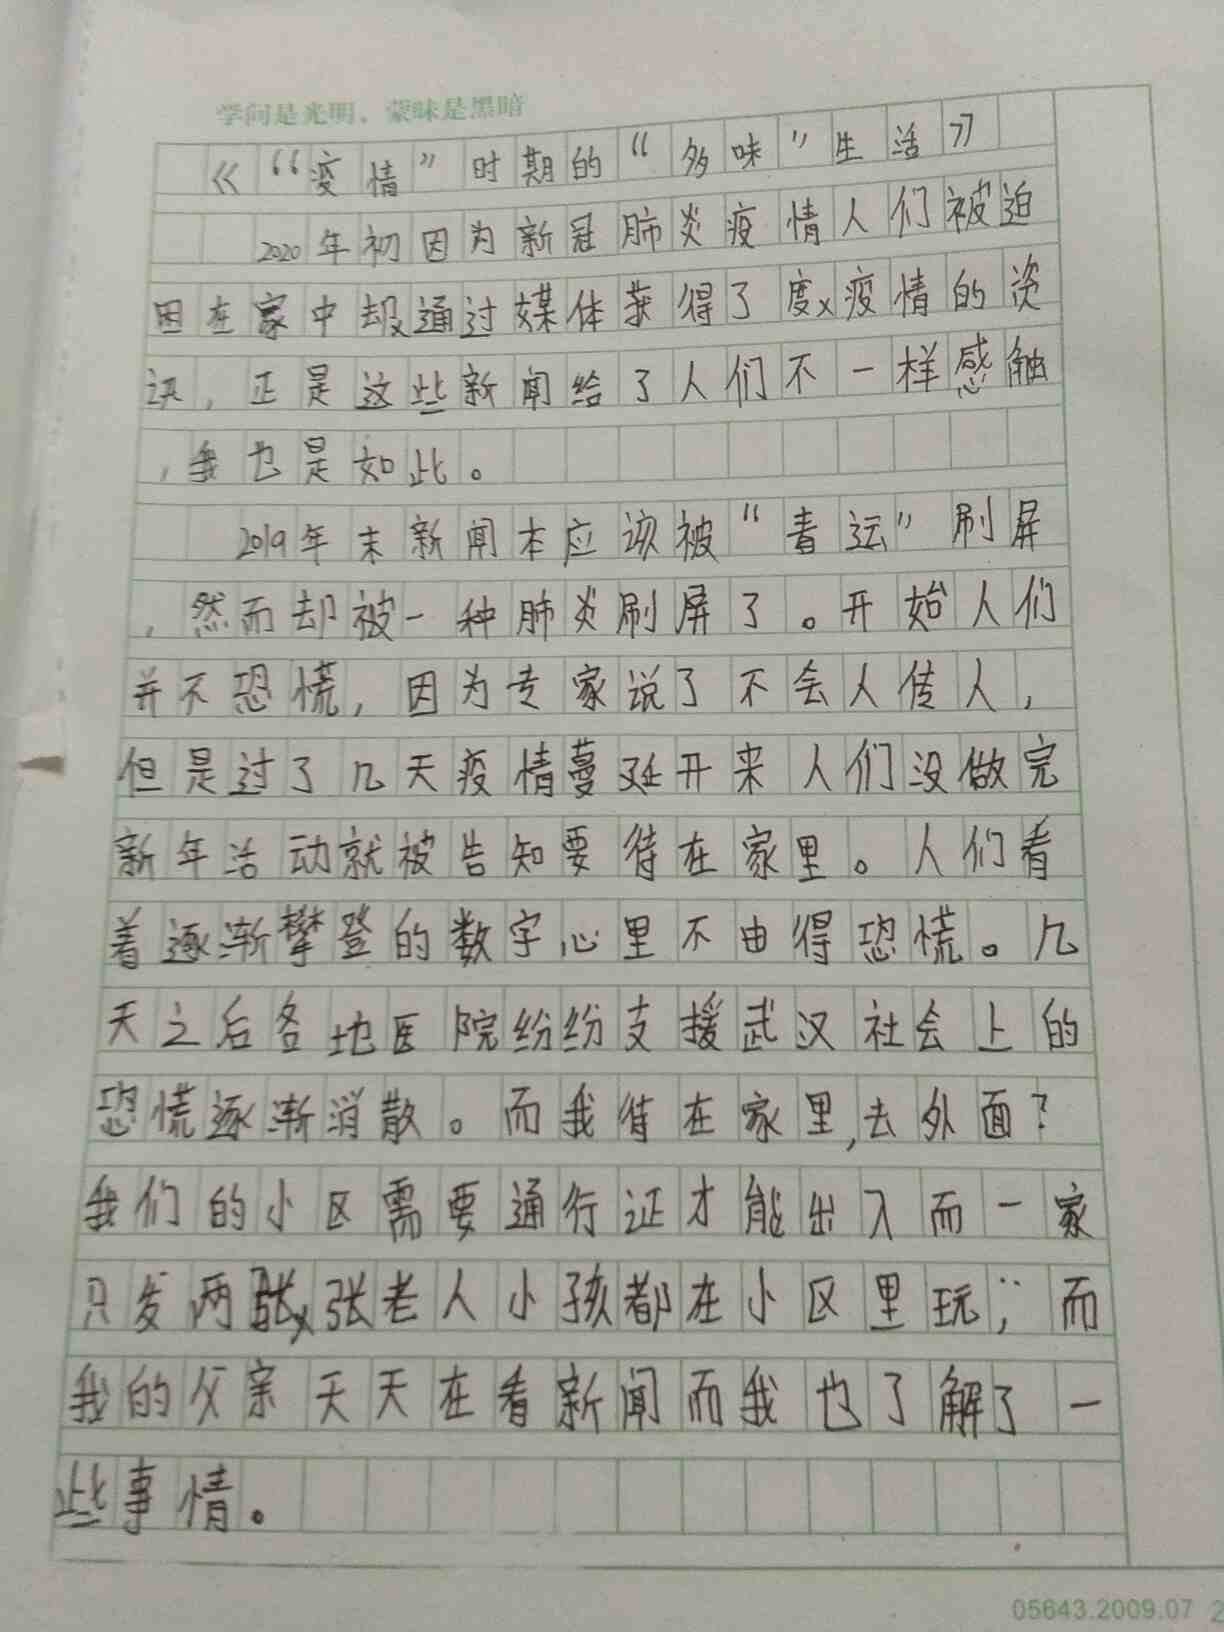 学问是光明，蒙昧是黑暗
《“疫情”时期的“多味”生活》
2020年初因为新冠肺炎疫情人们被迫
困在家中却通过媒体获得了度疫情的资
讯，正是这些新闻给了人们不一样感触
，我也是如此。
2019年末新闻本应该被“春运”刷屏
，然而却被一种肺炎刷屏了。开始人们
并不恐慌，因为专家说了不会人传人，
但是过了几天疫情蔓延开来人们没做完
新年活动就被告知要待在家里。人们看
着逐渐攀登的数字心里不由得恐慌。几
天之后各地医院纷纷支援武汉社会上的
恐慌逐渐消散。而我待在家里，去外面？
我们的小区需要通行证才能出入而一家
只发两张张老人小孩都在小区里玩；而
我的父亲天天在看新闻而我也了解了一
些事情。
05643.2009.07 2